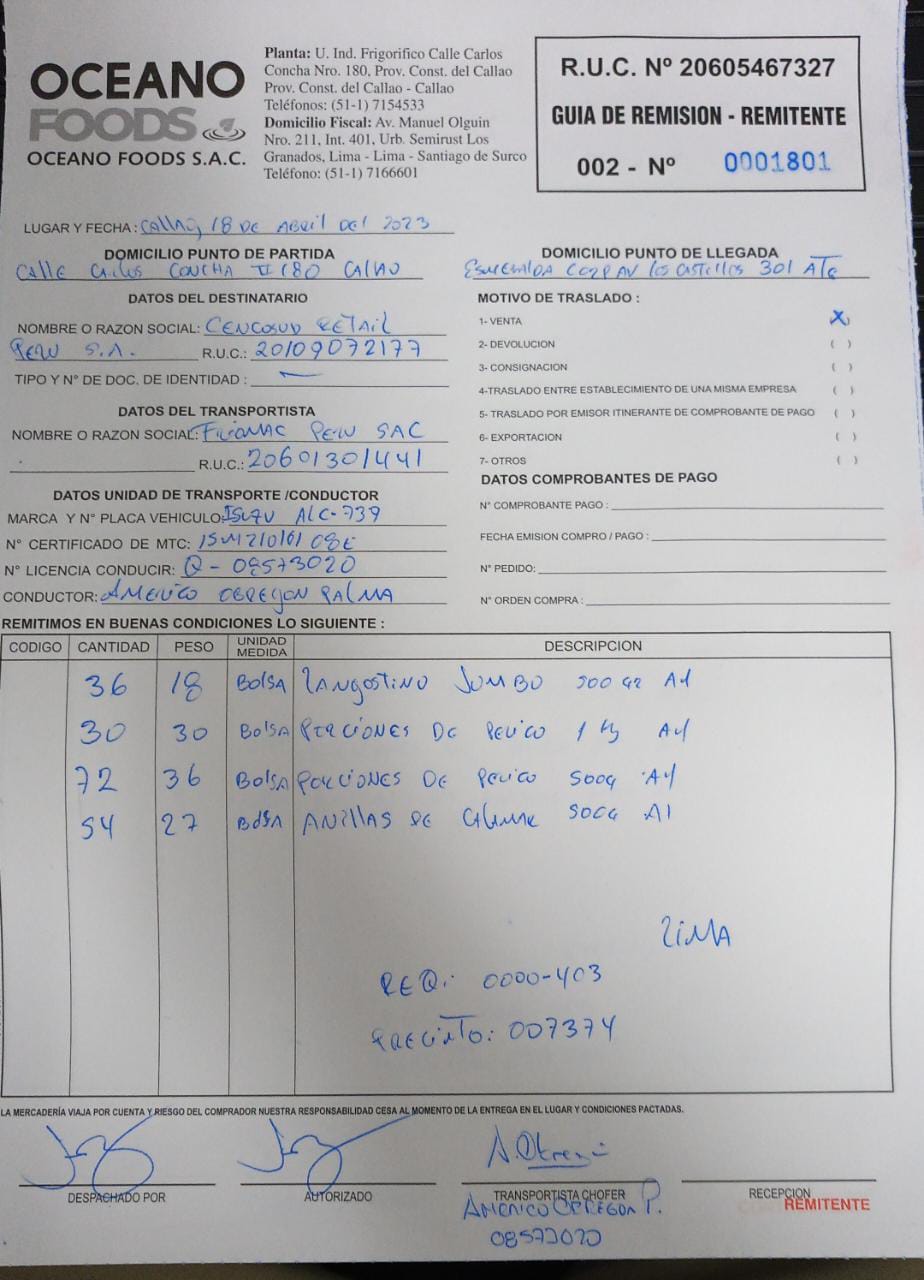 OCEANO
FOODS
OCEANO FOODS S.A.C.
Planta: U. Ind. Frigorifico Calle Carlos
Concha Nro. 180, Prov. Const. del Callao
Prov. Const. del Callao - Callao
Teléfonos: (51-1) 7154533
Domicilio Fiscal: Av. Manuel Olguin
Nro. 211, Int. 401, Urb. Semirust Los
Granados, Lima - Lima - Santiago de Surco
Teléfono: (51-1) 7166601
R.U.C. Nº 20605467327
GUIA DE REMISION - REMITENTE
002 - Nº 0001801
LUGAR Y FECHA: Callao, 18 DE ABRIL DEL 2023
DOMICILIO PUNTO DE PARTIDA
Calle Carlos CONCHA 180 CALLAO
DOMICILIO PUNTO DE LLEGADA
Esmeralda Corp AV los CASTILLOS 301 ATE
DATOS DEL DESTINATARIO
NOMBRE O RAZON SOCIAL: CENCOSUD RETAIL
PERU S.A. R.U.C.: 20109072177
TIPO Y N° DE DOC. DE IDENTIDAD :
MOTIVO DE TRASLADO :
1- VENTA (X)
2- DEVOLUCION ( )
3- CONSIGNACION ( )
4-TRASLADO ENTRE ESTABLECIMIENTO DE UNA MISMA EMPRESA ( )
5- TRASLADO POR EMISOR ITINERANTE DE COMPROBANTE DE PAGO ( )
6- EXPORTACION ( )
7- OTROS ( )
DATOS DEL TRANSPORTISTA
NOMBRE O RAZON SOCIAL: PERU SAC
R.U.C.: 20601301441
DATOS UNIDAD DE TRANSPORTE /CONDUCTOR
MARCA Y N° PLACA VEHICULO: ISUZU ALC-739
N° CERTIFICADO DE MTC: 08E
N° LICENCIA CONDUCIR: Q - 08573020
CONDUCTOR: AMERICO OBREGON PALMA
DATOS COMPROBANTES DE PAGO
N° COMPROBANTE PAGO :
FECHA EMISION COMPRO / PAGO :
N° PEDIDO:
N° ORDEN COMPRA :
REMITIMOS EN BUENAS CONDICIONES LO SIGUIENTE :
CODIGO CANTIDAD PESO UNIDAD MEDIDA DESCRIPCION
36 18 BOLSA LANGOSTINO JUMBO 500 GR A1
30 30 BOLSA PORCIONES DE PERICO 1 kg A1
72 36 BOLSA PORCIONES DE PERICO 500G A1
54 27 BOLSA ANILLAS DE CALAMAR 500G A1
LIMA
REQ: 0000-403
PRECINTO: 007374
LA MERCADERÍA VIAJA POR CUENTA Y RIESGO DEL COMPRADOR NUESTRA RESPONSABILIDAD CESA AL MOMENTO DE LA ENTREGA EN EL LUGAR Y CONDICIONES PACTADAS.
DESPACHADO POR
AUTORIZADO
TRANSPORTISTA CHOFER
AMERICO OBREGON P.
08573020
RECEPCION
REMITENTE